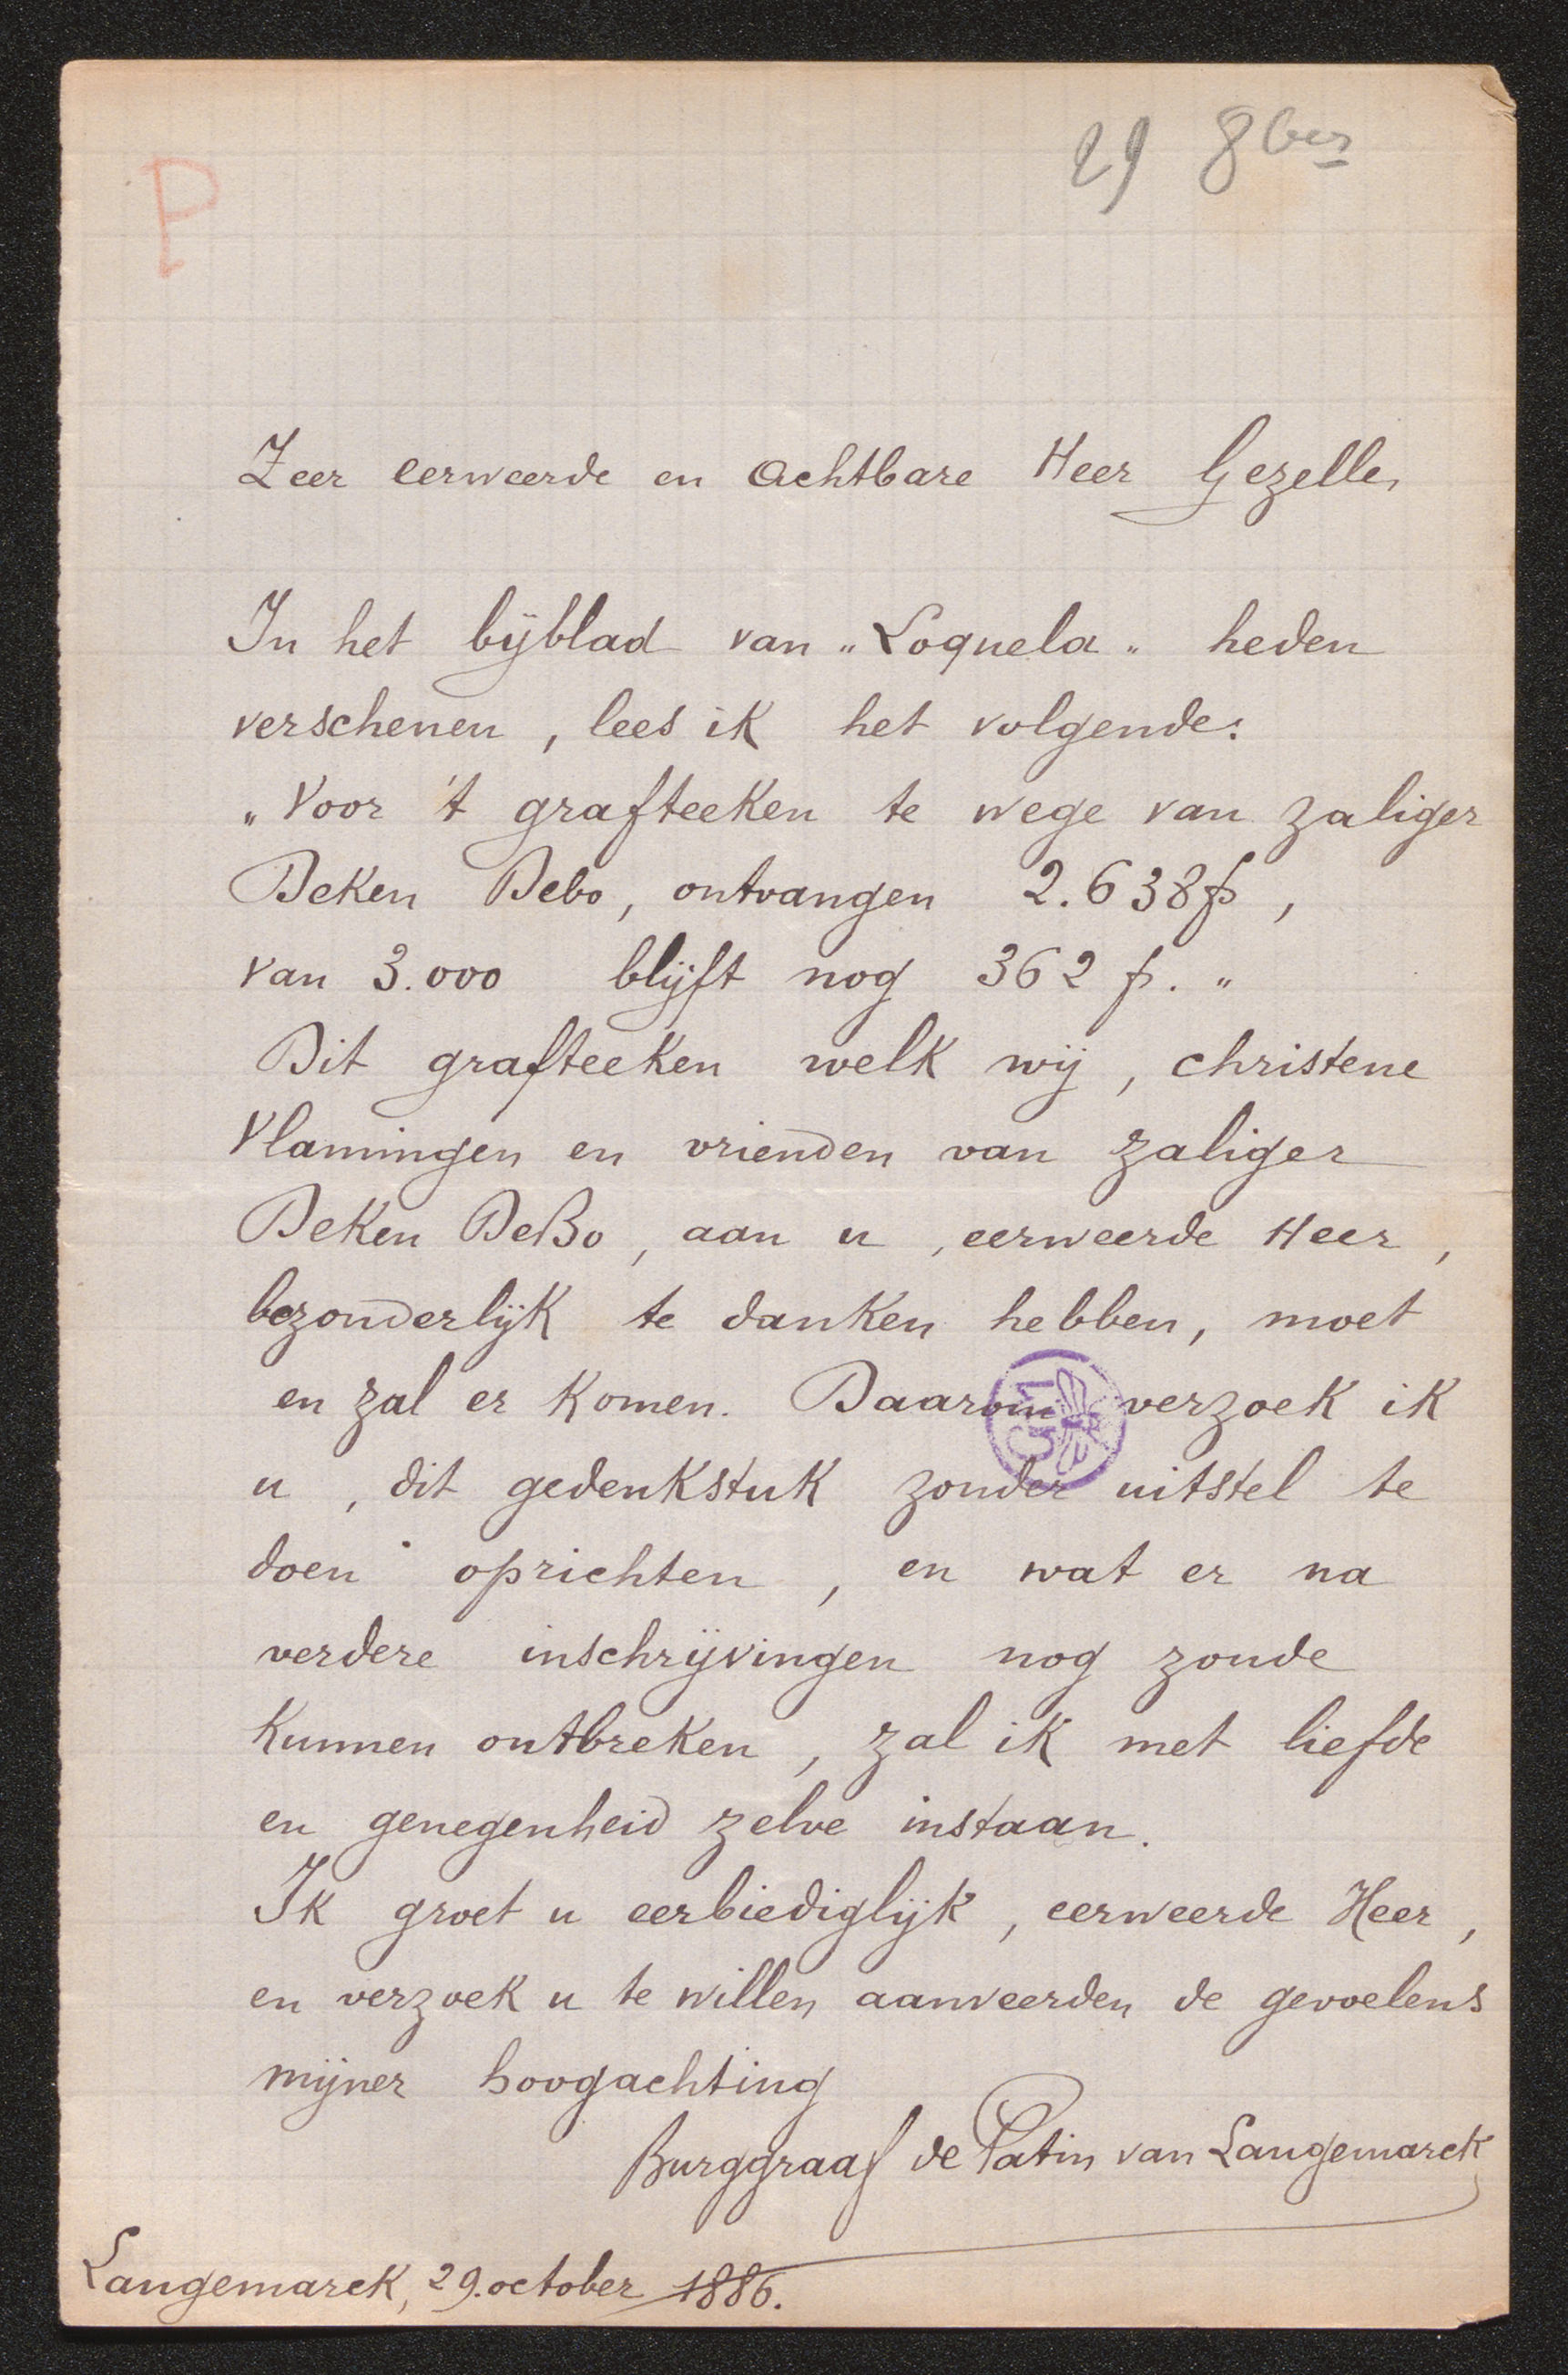 P
29 8ber
Zeer eerweerde en achtbare Heer Gezelle,
In het bijblad van „Loquela„ heden
verschenen, lees ik het volgende:
„Voor 't grafteeken te wege van zaliger
Deken Debo, ontvangen 2.638 fr,
van 3.000 blijft nog 362 fr. „
Dit grafteeken welk wij, christene
Vlamingen en vrienden van zaliger
Deken DeBo, aan u, eerweerde Heer,
bezonderlijk te danken hebben, moet
en zal er komen. Daarom verzoek ik
u, dit gedenkstuk zonder uitstel te
doen oprichten, en wat er na
verdere inschrijvingen nog zoude
kunnen ontbreken, zal ik met liefde
en genegenheid zelve instaan.
Ik groet u eerbiediglijk, eerweerde Heer,
en verzoek u te willen aanveerden de gevoelens
mijner hoogachting
Burggraaf de Patin van Langemarck
Langemarck, 29. october 1886.